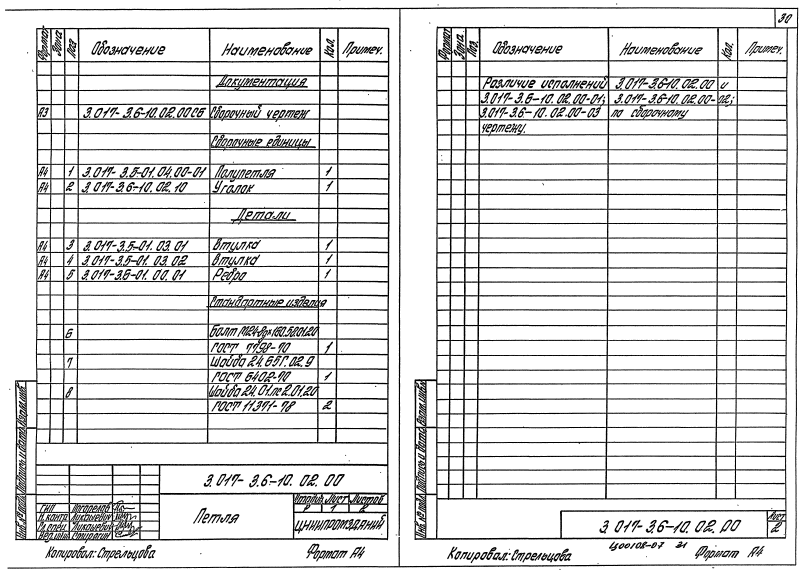 Формат Зона Поз. Обозначение Наименование Кол. Примеч.
Документация
А3 3.017-3.6-10.02.00СБ Сборочный чертеж
Сборочные единицы
А4 1 3.017-3.5-01.04.00-01 Полупетля 1
А4 2 3.017-3.6-10.02.10 Уголок 1
Детали
А4 3 3.017-3.5-01.03.01 Втулка 1
А4 4 3.017-3.5-01.03.02 Втулка 1
А4 5 3.017-3.6-01.00.01 Ребро 1
Стандартные изделия
6 Болт М24-8g×160.58.01.20
ГОСТ 7798-70 1
7 Шайба 24.65Г.02.9
ГОСТ 6402-70 1
8 Шайба
ГОСТ 11371-78 2
3.017-3.6-10.02.00
Петля
Стадия Лист Листов
Р 1 2
ЦНИИпромзданий
ГИП
Н.контр. Лукашевич
Гл.спец. Лукашевич
Вед.инж.
Инв.№ подл. Подпись и дата Взам.инв.№
Копировал: Стрельцова Формат А4
30
Формат Зона Поз. Обозначение Наименование Кол. Примеч.
Различие исполнений 3.017-3.6-10.02.00 и
3.017-3.6-10.02.00-01; 3.017-3.6-10.02.00-02;
3.017-3.6-10.02.00-03 по сборочному
чертежу.
Инв.№ подл. Подпись и дата Взам.инв.№
3.017-3.6-10.02.00
Лист
2
Копировал: Стрельцова Ц00108-07 31 Формат А4